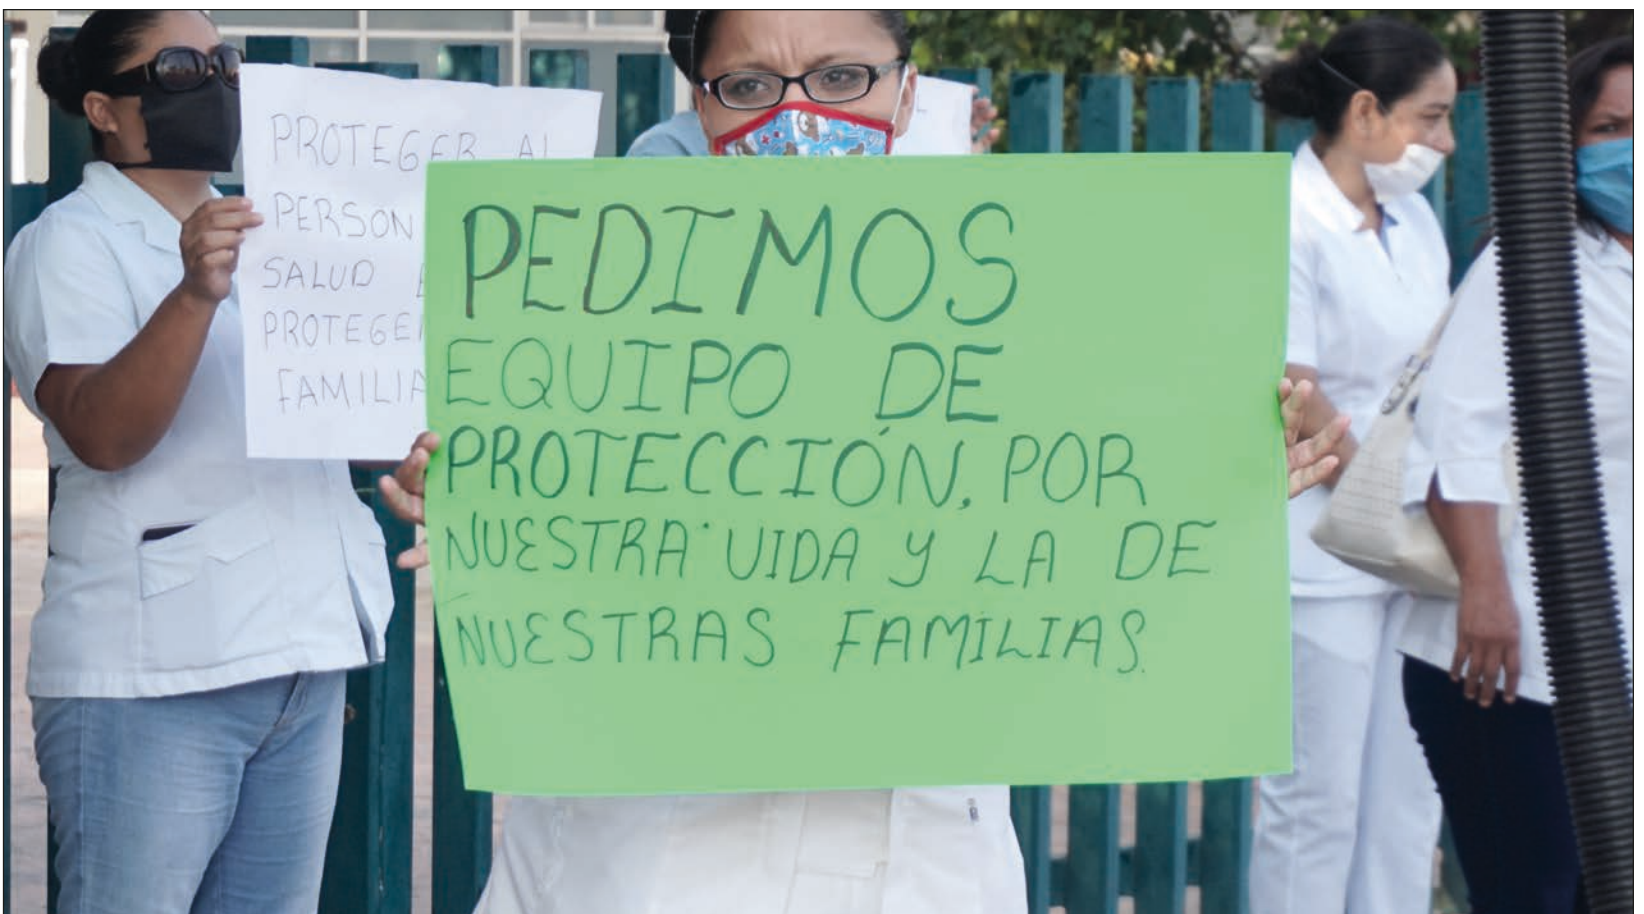 PROTEGER AL
PERSON
SALUD
PROTEGE
FAMILIA
PEDIMOS
EQUIPO DE
PROTECCIÓN, POR
NUESTRA VIDA Y LA DE
NUESTRAS FAMILIAS.